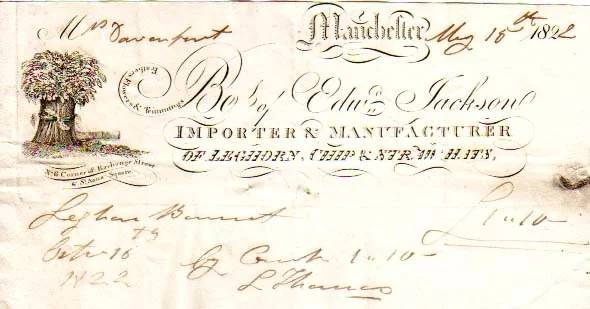 Mrs Davenport Manchester May 15th 1822
Feathers, Flowers & Trimmings
Bot. of Edwd. Jackson
IMPORTER & MANUFACTURER
OF LEGHORN, CHIP & STRAW HATS,
No. 6 Corner of Exchange Street
& St. Anns Square
Leghorn Bonnet £1 " 10 –
Octr 16th
1822
By Cash 1 " 10 –
L Thomas